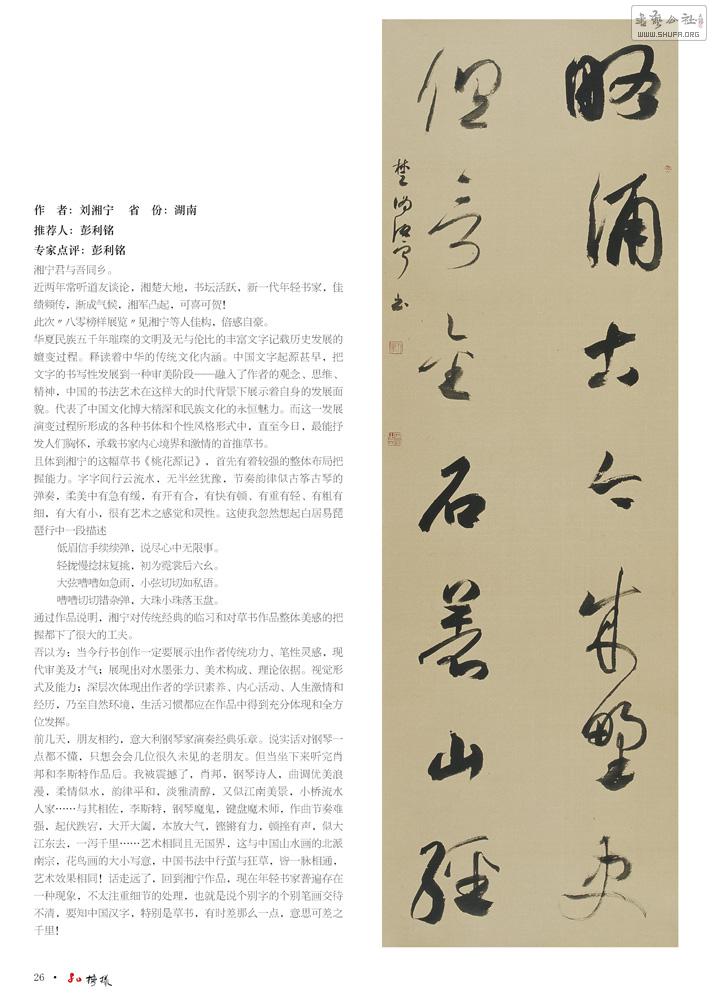 书艺公社
WWW.SHUFA.ORG
作 者：刘湘宁 省 份：湖南
推荐人：彭利铭
专家点评：彭利铭
湘宁君与吾同乡。
近两年常听道友谈论，湘楚大地，书坛活跃，新一代年轻书家，佳
绩频传，渐成气候，湘军凸起，可喜可贺！
此次〃八零榜样展览〃见湘宁等人佳构，倍感自豪。
华夏民族五千年璀璨的文明及无与伦比的丰富文字记载历史发展的
嬗变过程。释读着中华的传统文化内涵。中国文字起源甚早，把
文字的书写性发展到一种审美阶段——融入了作者的观念、思维、
精神，中国的书法艺术在这样大的时代背景下展示着自身的发展面
貌。代表了中国文化博大精深和民族文化的永恒魅力。而这一发展
演变过程所形成的各种书体和个性风格形式中，直至今日，最能抒
发人们胸怀，承载书家内心境界和激情的首推草书。
且体到湘宁的这幅草书《桃花源记》，首先有着较强的整体布局把
握能力。字字间行云流水，无半丝犹豫，节奏韵律似古筝古琴的
弹奏，柔美中有急有缓，有开有合，有快有顿、有重有轻、有粗有
细，有大有小，很有艺术之感觉和灵性。这使我忽然想起白居易琵
琶行中一段描述
低眉信手续续弹，说尽心中无限事。
轻拢慢捻抹复挑，初为霓裳后六幺。
大弦嘈嘈如急雨，小弦切切如私语。
嘈嘈切切错杂弹，大珠小珠落玉盘。
通过作品说明，湘宁对传统经典的临习和对草书作品整体美感的把
握都下了很大的工夫。
吾以为：当今行书创作一定要展示出作者传统功力、笔性灵感，现
代审美及才气；展现出对水墨张力、美术构成、理论依据。视觉形
式及能力；深层次体现出作者的学识素养、内心活动、人生激情和
经历，乃至自然环境，生活习惯都应在作品中得到充分体现和全方
位发挥。
前几天，朋友相约，意大利钢琴家演奏经典乐章。说实话对钢琴一
点都不懂，只想会会几位很久未见的老朋友。但当坐下来听完肖
邦和李斯特作品后。我被震撼了，肖邦，钢琴诗人，曲调优美浪
漫，柔情似水，韵律平和，淡雅清醇，又似江南美景，小桥流水
人家……与其相佐，李斯特，钢琴魔鬼，键盘魔术师，作曲节奏难
强，起伏跌宕，大开大阖，本放大气，铿锵有力，顿挫有声，似大
江东去，一泻千里……艺术相同且无国界，这与中国山水画的北派
南宗，花鸟画的大小写意，中国书法中行草与狂草，皆一脉相通，
艺术效果相同！话走远了，回到湘宁作品，现在年轻书家普遍存在
一种现象，不太注重细节的处理，也就是说个别字的个别笔画交待
不清，要知中国汉字，特别是草书，有时差那么一点，意思可差之
千里！
略涌古今成野史
但寻金石著山经
楚 宁书
26 • 80榜样